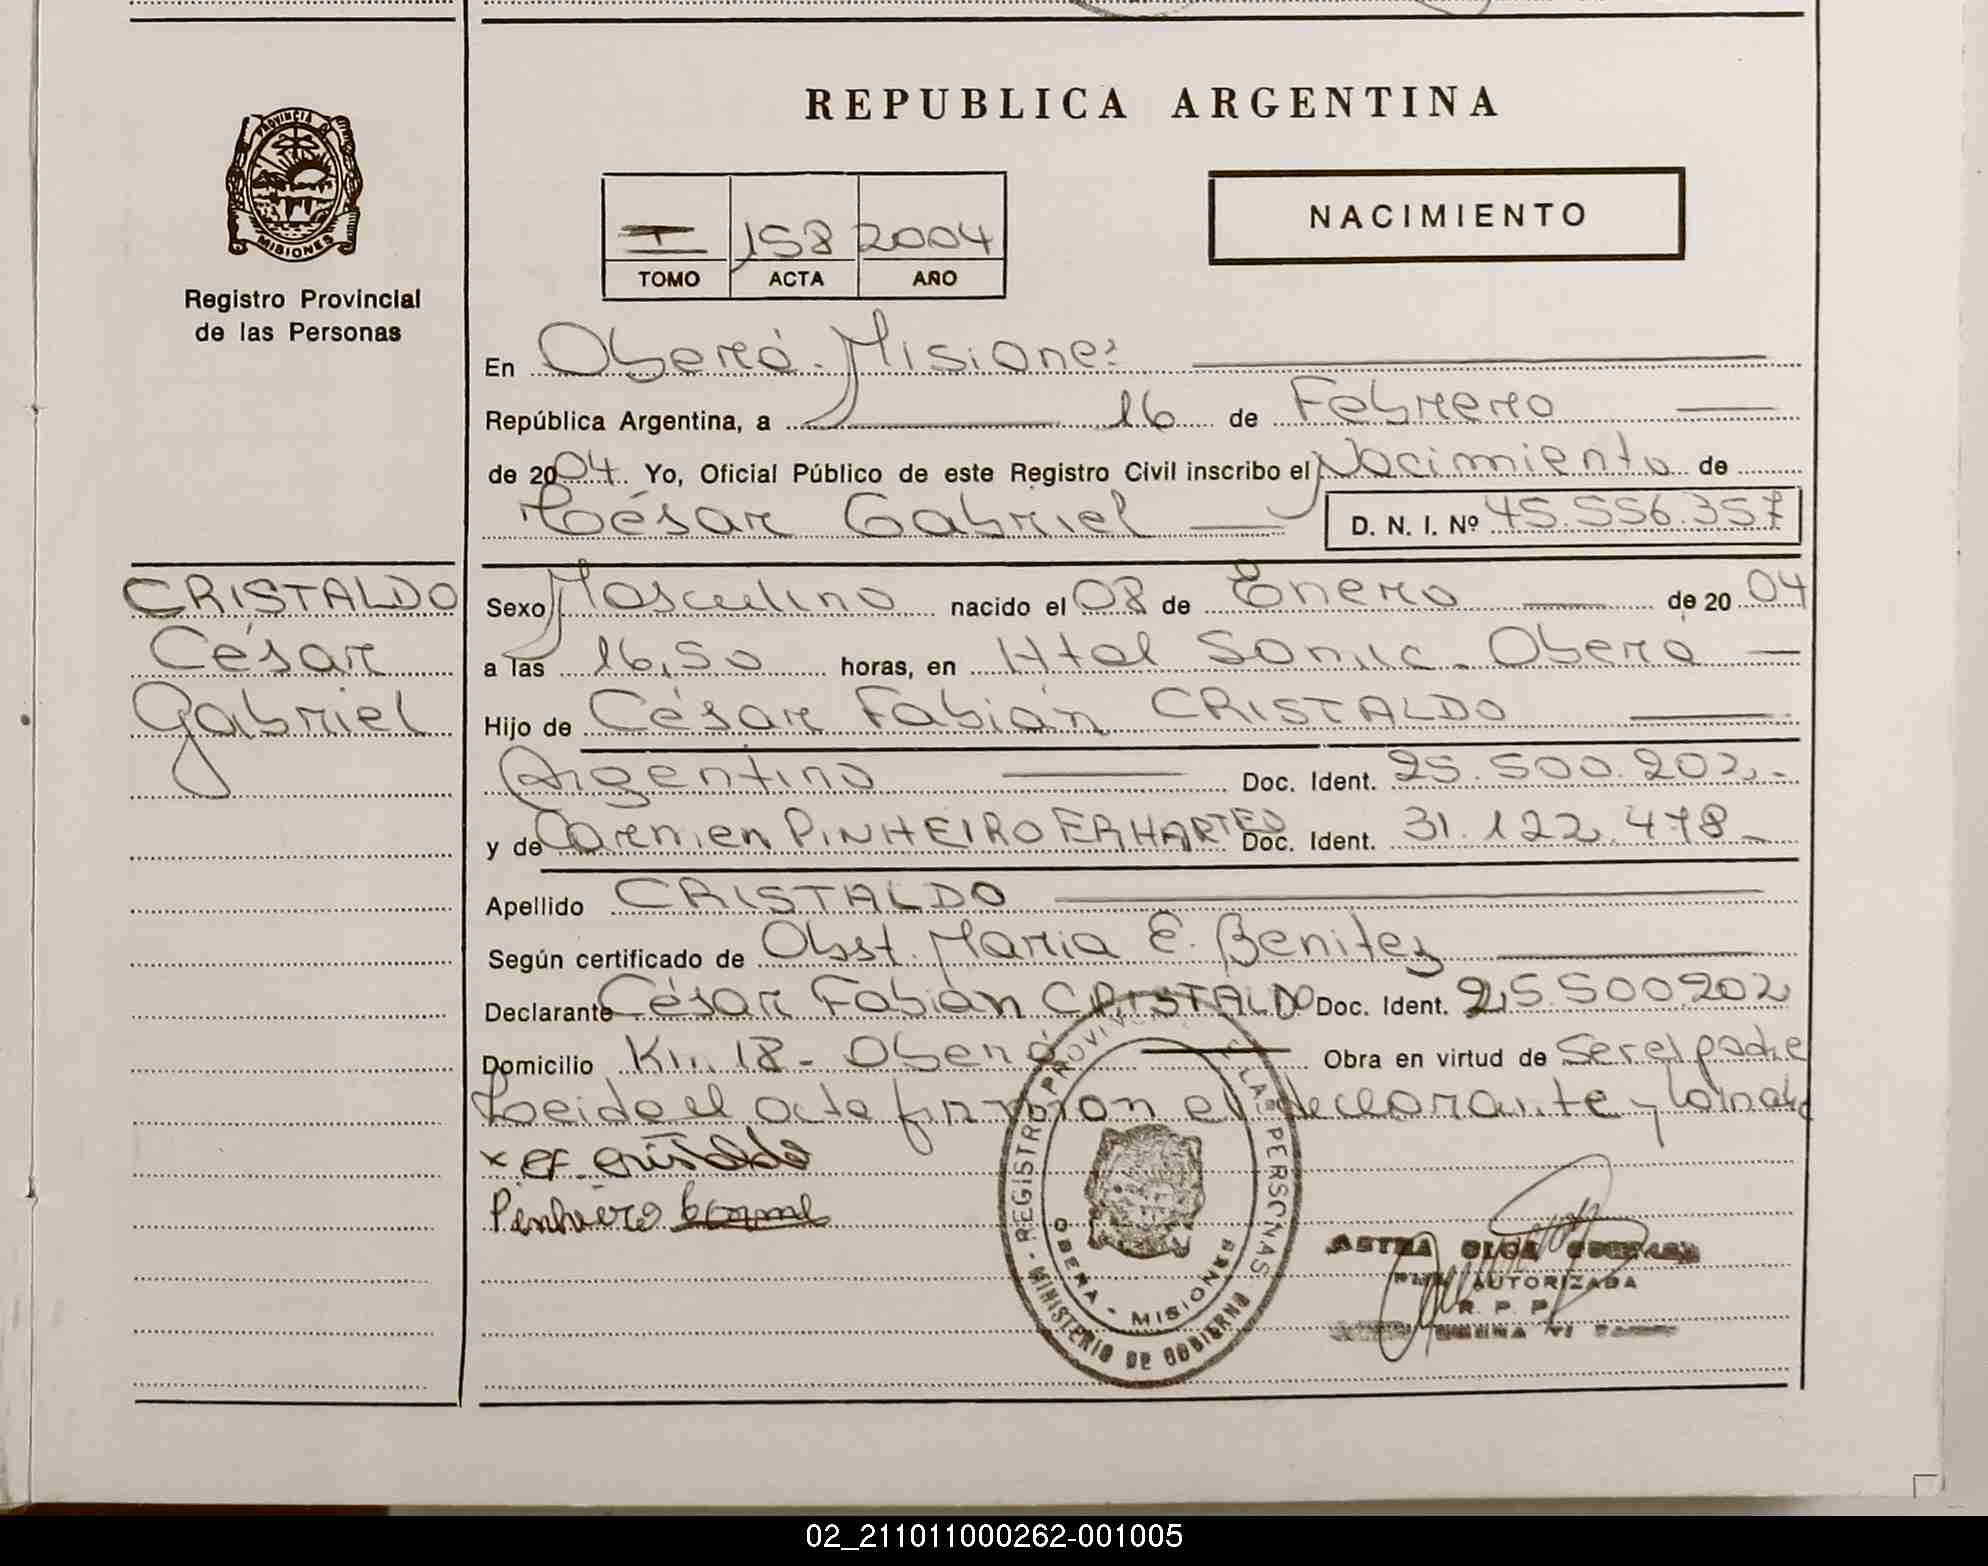 REPUBLICA ARGENTINA
PROVINCIA D
MISIONES
Registro Provincial
de las Personas
I 158 2004
TOMO ACTA AÑO
NACIMIENTO
En Oberá. Misiones
República Argentina, a 16 de Febrero
de 2004. Yo, Oficial Público de este Registro Civil inscribo el Nacimiento de
César Gabriel D. N. I. Nº 45.556.357
CRISTALDO
César
Gabriel
Sexo Masculino nacido el 08 de Enero de 2004
a las 16,50 horas, en Htal Samic. Oberá
Hijo de César Fabián CRISTALDO
Argentino Doc. Ident. 25.500.202.-
y de Carmen PINHEIRO Doc. Ident. 31.122.478
Apellido CRISTALDO
Según certificado de Obst. Maria E. Benitez
Declarante César Fabián CRISTALDO Doc. Ident. 25.500202
Domicilio Km. 18 - Oberá Obra en virtud de Ser el padre
Leida el acta firman el declarante y la
x CF. Cristaldo
Pinheiro
REGISTRO PROVINCIAL DE LAS PERSONAS
OBERA - MISIONES
MINISTERIO DE GOBIERNO
OLGA
AUTORIZADA
R. P. P.
02_211011000262-001005